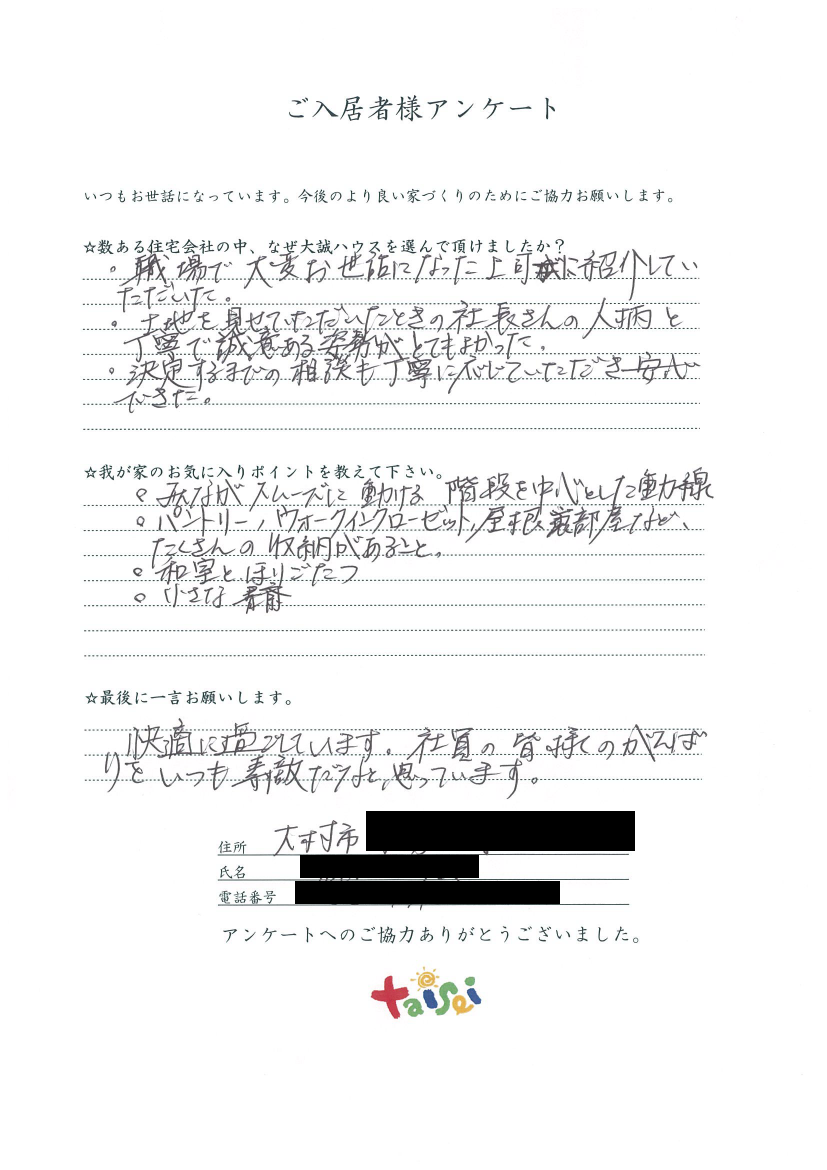 ご入居者様アンケート
いつもお世話になっています。今後のより良い家づくりのためにご協力お願いします。
☆数ある住宅会社の中、なぜ大誠ハウスを選んで頂けましたか?
・職場で大変お世話になった上司に紹介してい
ただいた。
・土地を見せていただいたときの社長さんの人柄と
丁寧で誠意ある姿勢がとてもよかった。
・決定するまでの相談も丁寧に応じていただき安心
できた。
☆我が家のお気に入りポイントを教えて下さい。
○ みんながスムーズに動ける 階段を中心とした動線
○ パントリー、ウォークインクローゼット、屋根裏部屋など、
たくさんの収納があること。
○ 和室とほりごたつ
○ 小さな書斎
☆最後に一言お願いします。
快適に過ごしています。社員の皆様のがんば
りをいつも素敵だなと思っています。
住所 大村市
氏名
電話番号
アンケートへのご協力ありがとうございました。
taisei